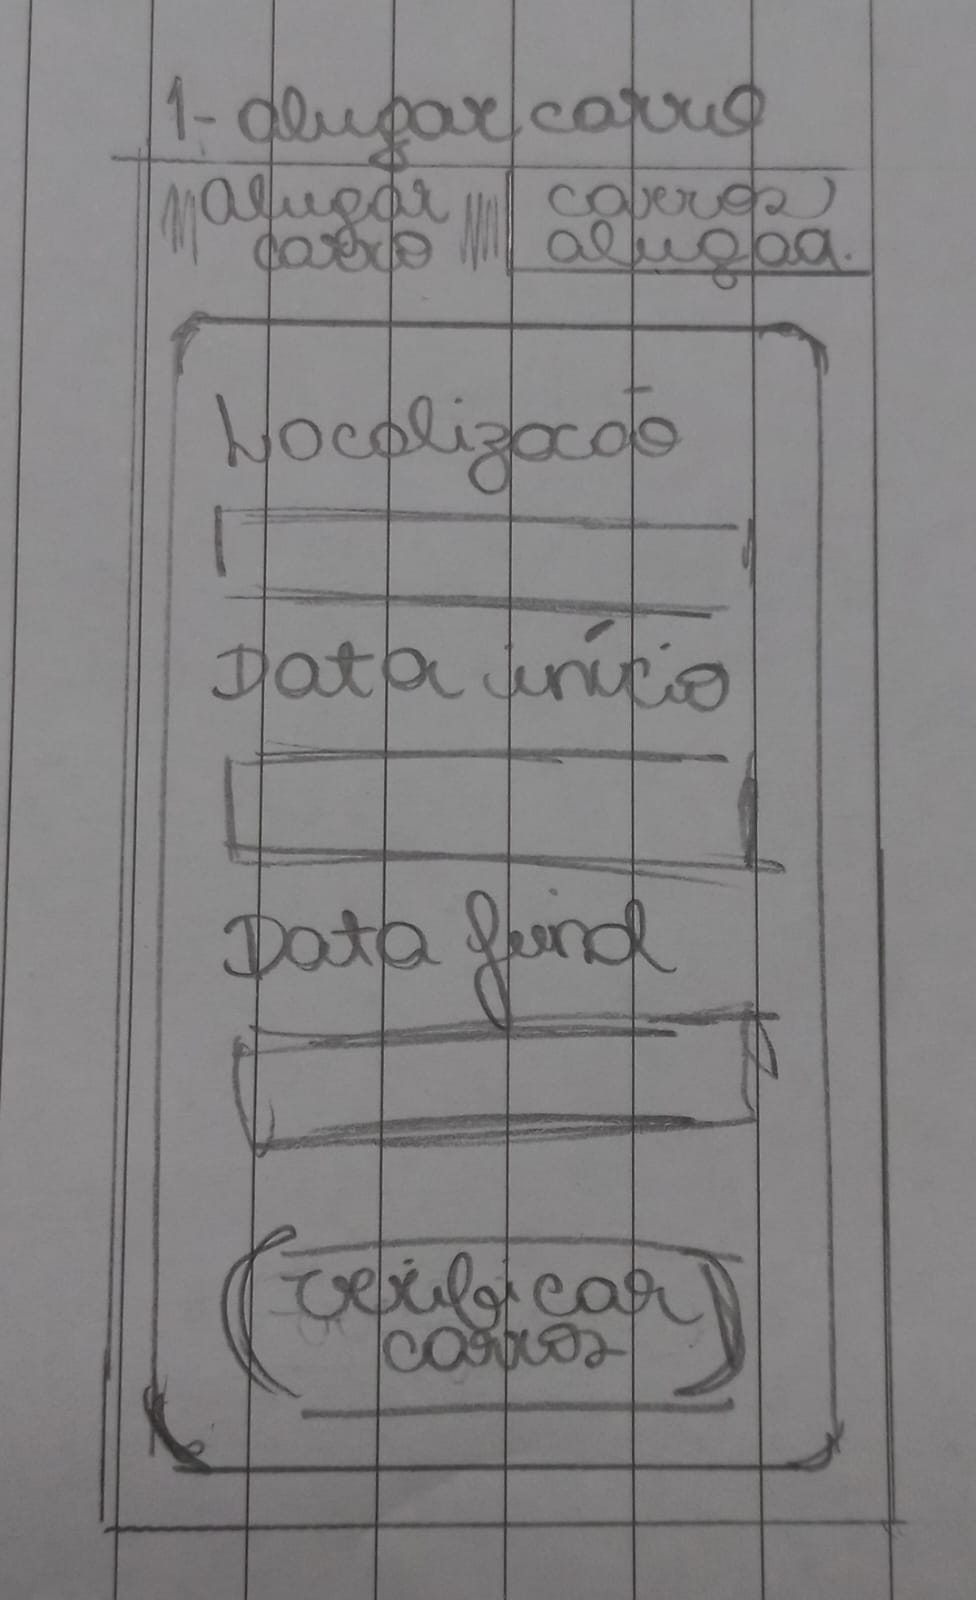 1- alugar carro
alugar
carro
carros
alugaa.
Localizacão
Data início
Data final
verificar
carros